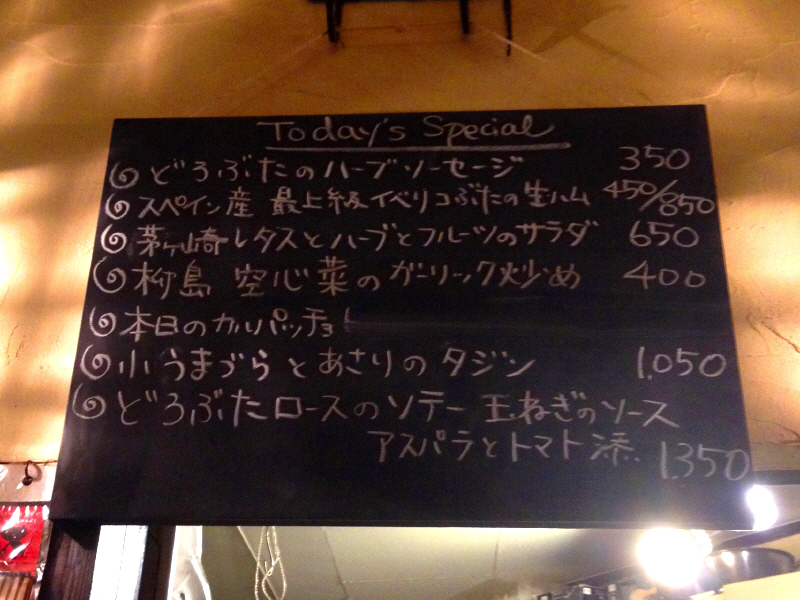 Today's Special
どろぶたのハーブソーセージ 350
スペイン産 最上級イベリコぶたの生ハム 450/850
茅ヶ崎レタスとハーブとフルーツのサラダ 650
柳島 空心菜のガーリック炒め 400
本日のカルパッチョ
小うまづらとあさりのタジン 1.050
どろぶたロースのソテー 玉ねぎのソース
アスパラとトマト添 1.350